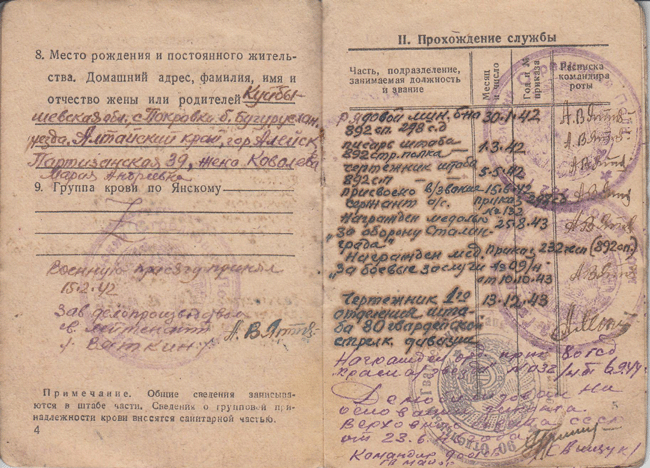 8. Место рождения и постоянного житель-
ства. Домашний адрес, фамилия, имя и
отчество жены или родителей Куйбы-
шевская обл. с. Покровка б. Бугуруслан.
уезда. Алтайский край, гор Алейск
Партизанская 39, жена Ковалёва
Мария Андреевна
9. Группа крови по Янскому
Военную присягу принял
15.2.42
Зав делопроизводством
лейтенант
Вяткин
Примечание. Общие сведения записыва-
ются в штабе части. Сведения о групповой при-
надлежности крови вносятся санитарной частью.
4
II. Прохождение службы
Часть, подразделение, занимаемая должность и звание
Месяц и число
Год и № приказа
Расписка командира роты
Рядовой мин. б-на 30.1.42
892 сп. 298 с.д
писарь штаба 1.3.42
892 стр. полка
чертежник штаба 5.5.42
892 сп
присвоено в/звание 15.8.42
сержант а/с. приказ 298 сд
№ 132
Награжден медалью 25.8.43
"За оборону Сталин-
града"
Награжден мед. Приказ 232 гв сп (892 сп.)
"За боевые заслуги" № 09/н
от 10.10.43
Чертежник 1го 13.12.43
отделения шта-
ба 80 гвардейской
стрелк. дивизии
Награжден орд. прик 80 гсд
красная звезда № 032/н
Демобилизован на
основании
Верховного СССР
от 23.6.
Командир